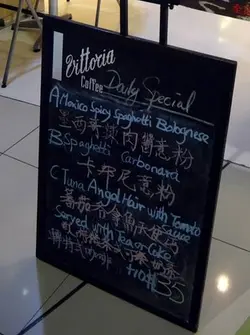 Vittoria
Coffee
Daily Special
A Mexico Spicy Spaghetti Bolognese
墨西哥辣肉醬意粉
B Spaghetti Carbonara
卡邦尼意粉
C Tuna Angel Hair with Tomato Sauce
蕃茄吞拿魚天使麵
Served with Tea or Coke
轉特式咖啡 +10
$35